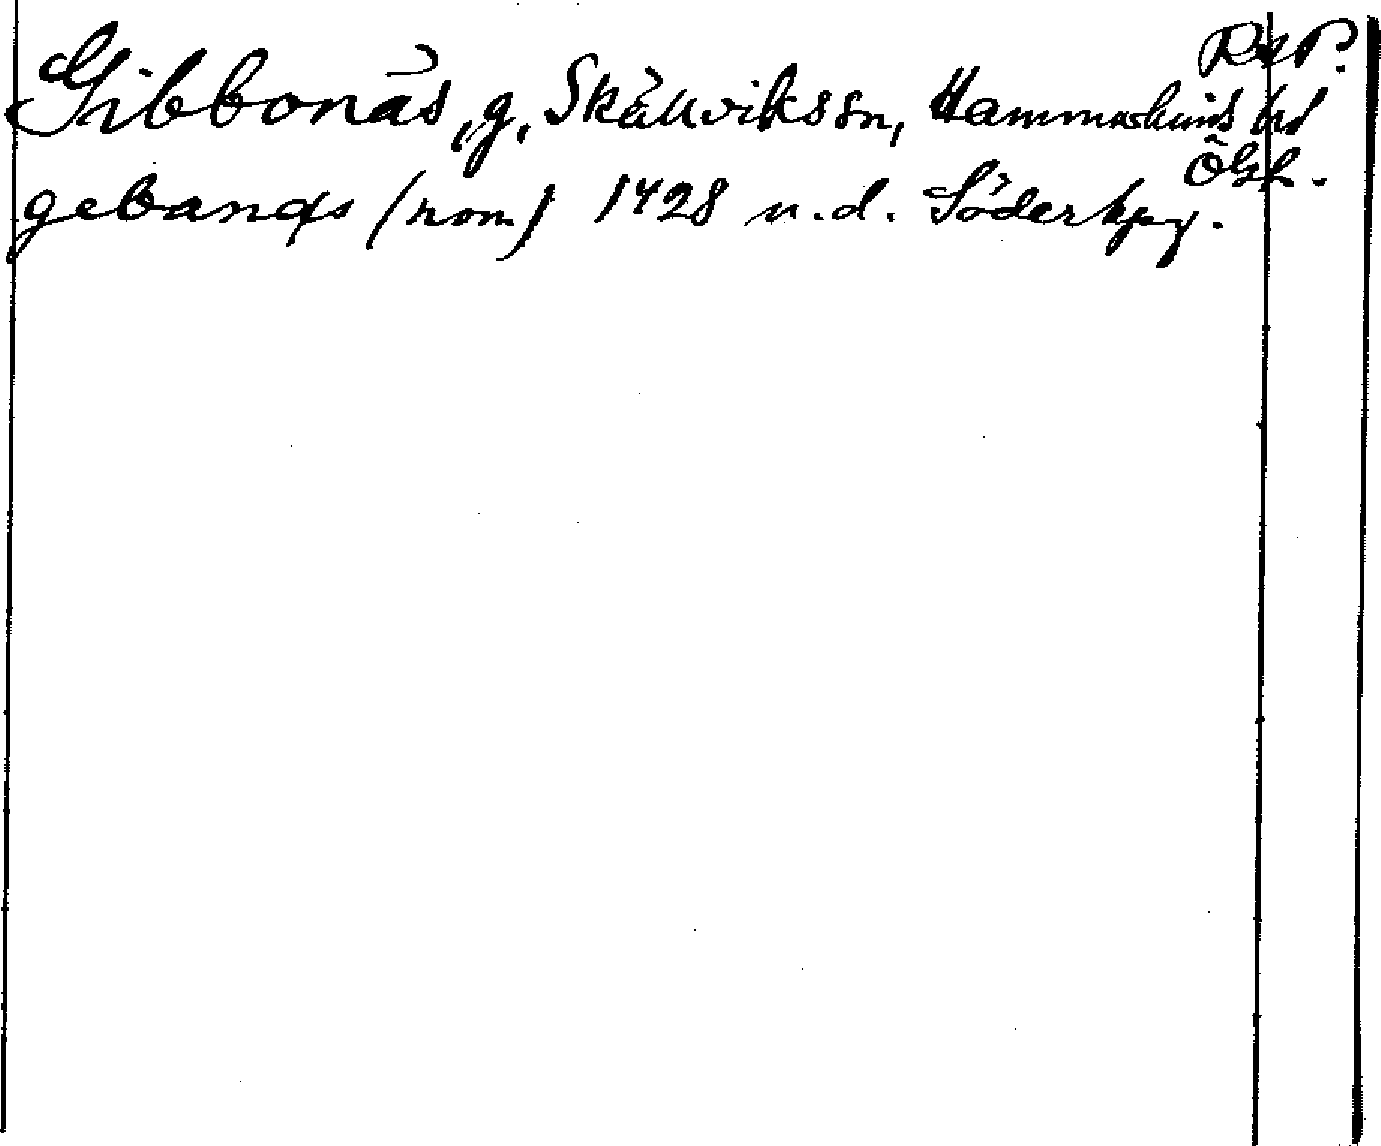 RAP.
Gibbonäs, g, Skällvikssn, Hammarkinds hd
Ögl.
gebanæs (nom) 1428 u.d. Söderkpg.